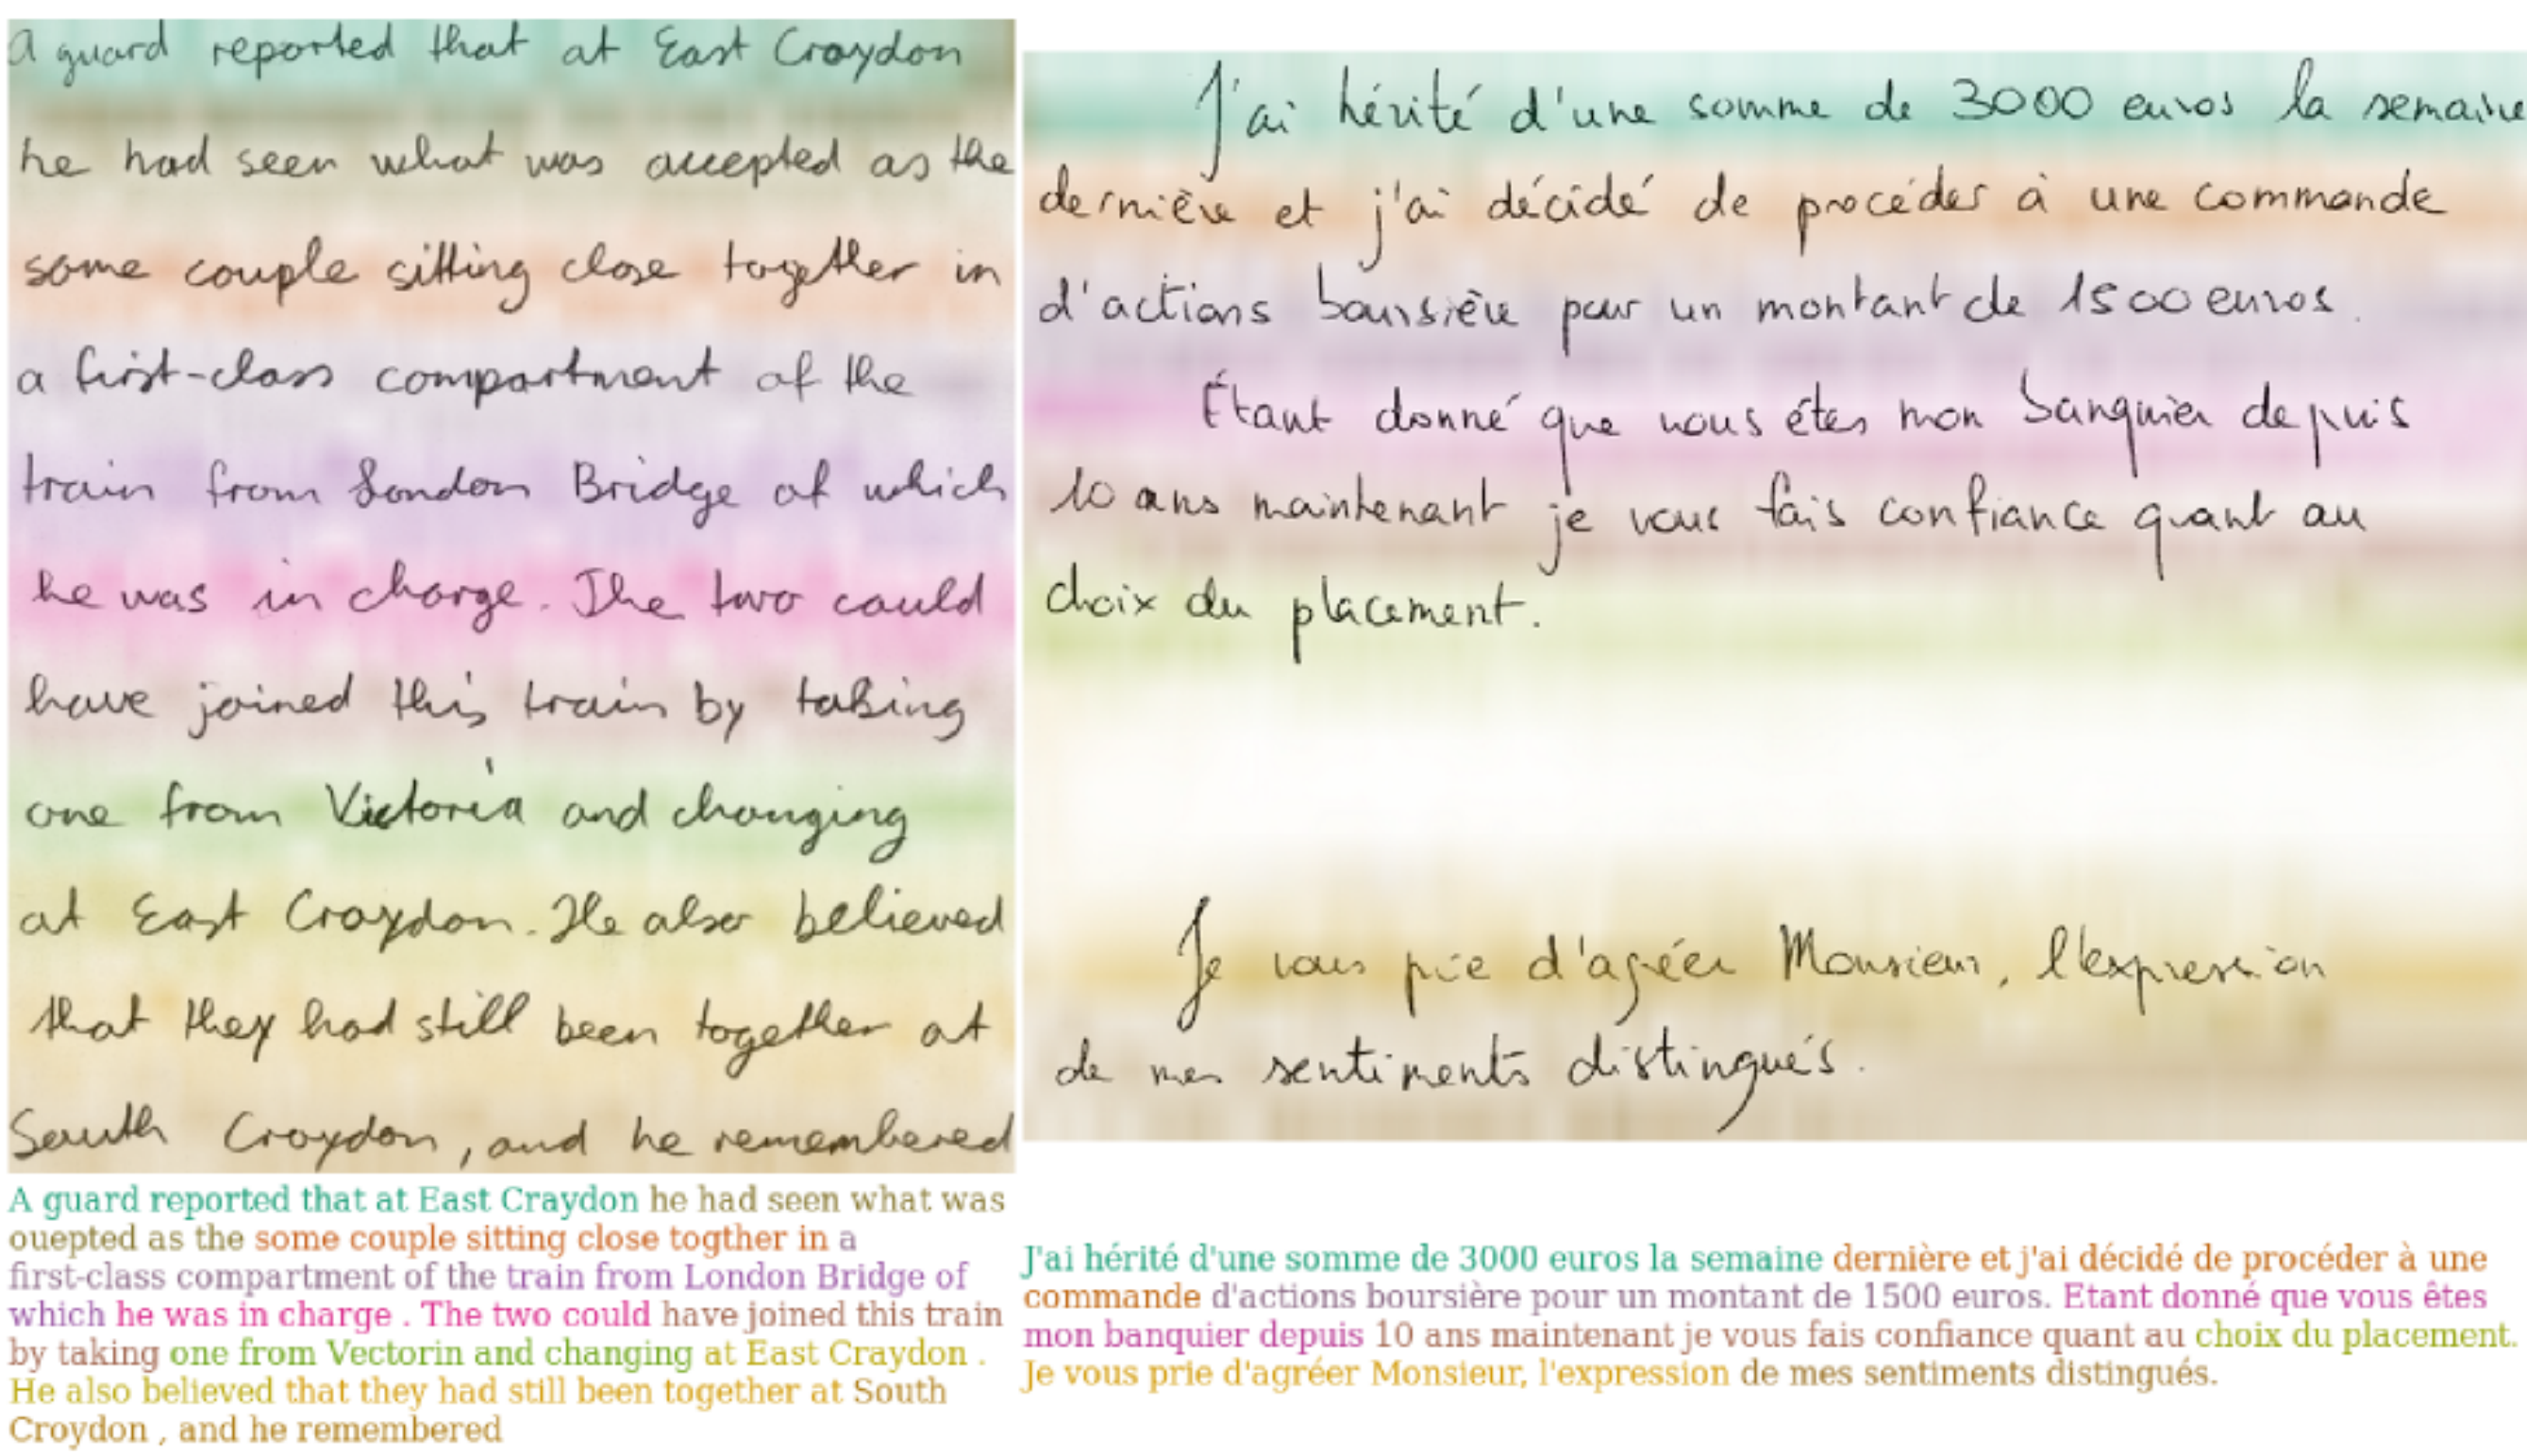 A guard reported that at East Croydon
he had seen what was accepted as the
same couple sitting close together in
a first-class compartment of the
train from London Bridge of which
he was in charge. The two could
have joined this train by taking
one from Victoria and changing
at East Croydon. He also believed
that they had still been together at
South Croydon, and he remembered
A guard reported that at East Craydon he had seen what was
ouepted as the some couple sitting close togther in a
first-class compartment of the train from London Bridge of
which he was in charge . The two could have joined this train
by taking one from Vectorin and changing at East Craydon .
He also believed that they had still been together at South
Croydon , and he remembered
J'ai hérité d'une somme de 3000 euros la semaine
dernière et j'ai décidé de procéder à une commande
d'actions boursière pour un montant de 1500 euros.
Étant donné que vous étes mon banquier depuis
10 ans maintenant je vous fais confiance quant au
choix du placement.
Je vous prie d'agréer Monsieur, l'expression
de mes sentiments distingués.
J'ai hérité d'une somme de 3000 euros la semaine dernière et j'ai décidé de procéder à une
commande d'actions boursière pour un montant de 1500 euros. Etant donné que vous êtes
mon banquier depuis 10 ans maintenant je vous fais confiance quant au choix du placement.
Je vous prie d'agréer Monsieur, l'expression de mes sentiments distingués.